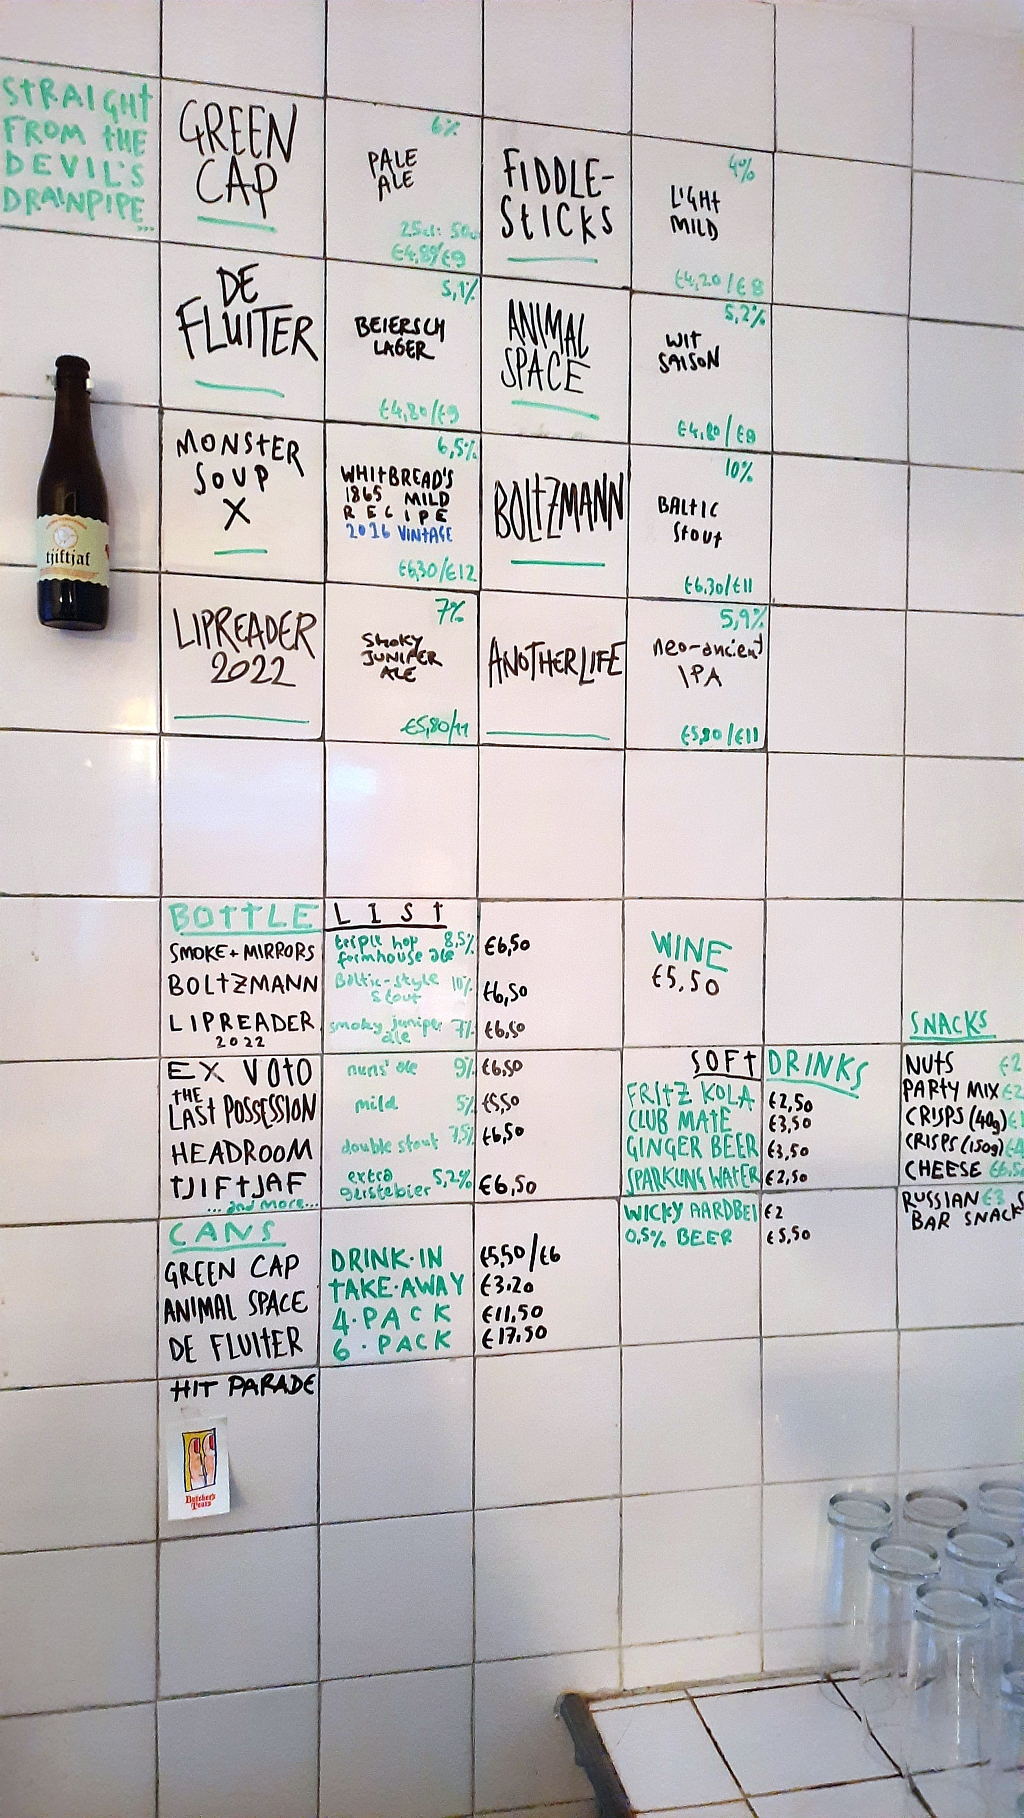 STRAIGHT
FROM THE
DEVIL'S
DRAINPIPE...
GREEN
CAP
6%
PALE
ALE
25cl: 50cl
FIDDLE-
STICKS
4%
LIGHT
MILD
€4,20/€8
DE
FLUITER
5,1%
BEIERSCH
LAGER
€4,80/€9
ANIMAL
SPACE
5,2%
WIT
SAISON
€4,80/€9
MONSTER
SOUP
X
6,5%
WHITBREAD'S
1865 MILD
RECIPE
2016 VINTAGE
€6,30/€12
BOLTZMANN
10%
BALTIC
STOUT
€6,30/€11
LIPREADER
2022
7%
SMOKY
JUNIPER
ALE
€5,80/11
ANOTHER LIFE
5,9%
neo-ancient
IPA
€5,80/€11
tjiftjaf
BOTTLE LIST
SMOKE + MIRRORS triple hop 8,5% €6,50
farmhouse ale
BOLTZMANN Baltic-style 10% €6,50
stout
LIPREADER smoky juniper 7% €6,50
2022 ale
EX VOTO nuns' ale 9% €6,50
THE
LAST POSSESSION mild 5% €5,50
HEADROOM double stout 7,5% €6,50
TJIFTJAF extra 5,2% €6,50
gerstebier
...and more...
CANS
GREEN CAP
ANIMAL SPACE
DE FLUITER
HIT PARADE
DRINK-IN €5,50/€6
TAKE-AWAY €3.20
4-PACK €11,50
6-PACK €17.50
Butcher's
Tears
WINE
€5,50
SOFT DRINKS
FRITZ KOLA €2,50
CLUB MATE €3,50
GINGER BEER €3,50
SPARKLING WATER €2,50
WICKY AARDBEI €2
0,5% BEER €5,50
SNACKS
NUTS €2
PARTY MIX €2
CRISPS (40g)
CRISPS (150g)
CHEESE
RUSSIAN €3
BAR SNACKS